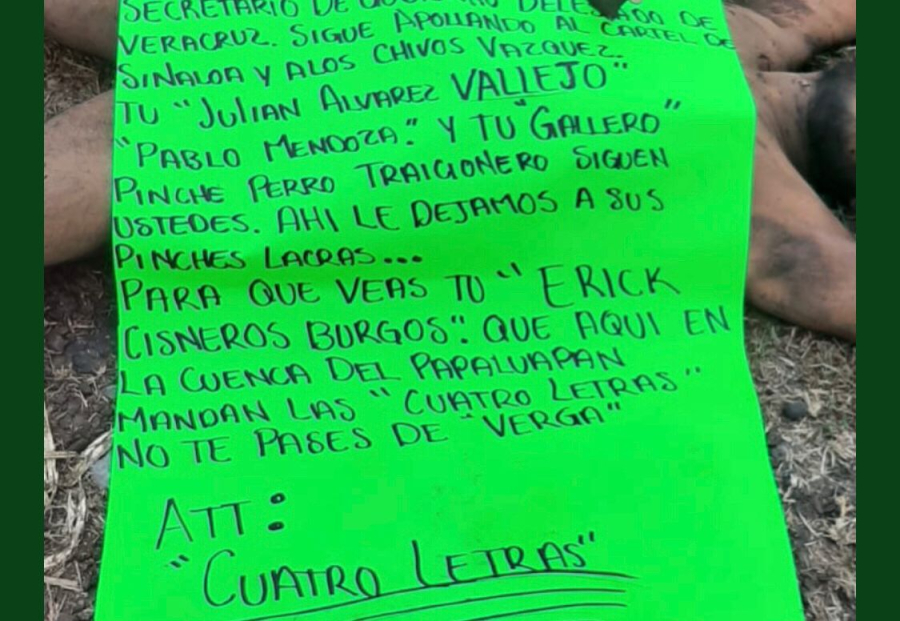 SECRETARIO DE
VERACRUZ. SIGUE APOLLANDO AL CARTEL DE
SINALOA Y ALOS CHIVOS VAZQUEZ.
TU "JULIAN ALVAREZ VALLEJO"
"PABLO MENDOZA." Y TU "GALLERO"
PINCHE PERRO TRAICIONERO SIGUEN
USTEDES. AHI LE DEJAMOS A SUS
PINCHES LACRAS...
PARA QUE VEAS TU "ERICK
CISNEROS BURGOS". QUE AQUI EN
LA CUENCA DEL PAPALUAPAN
MANDAN LAS "CUATRO LETRAS"
NO TE PASES DE "VERGA"
ATT:
"CUATRO LETRAS"